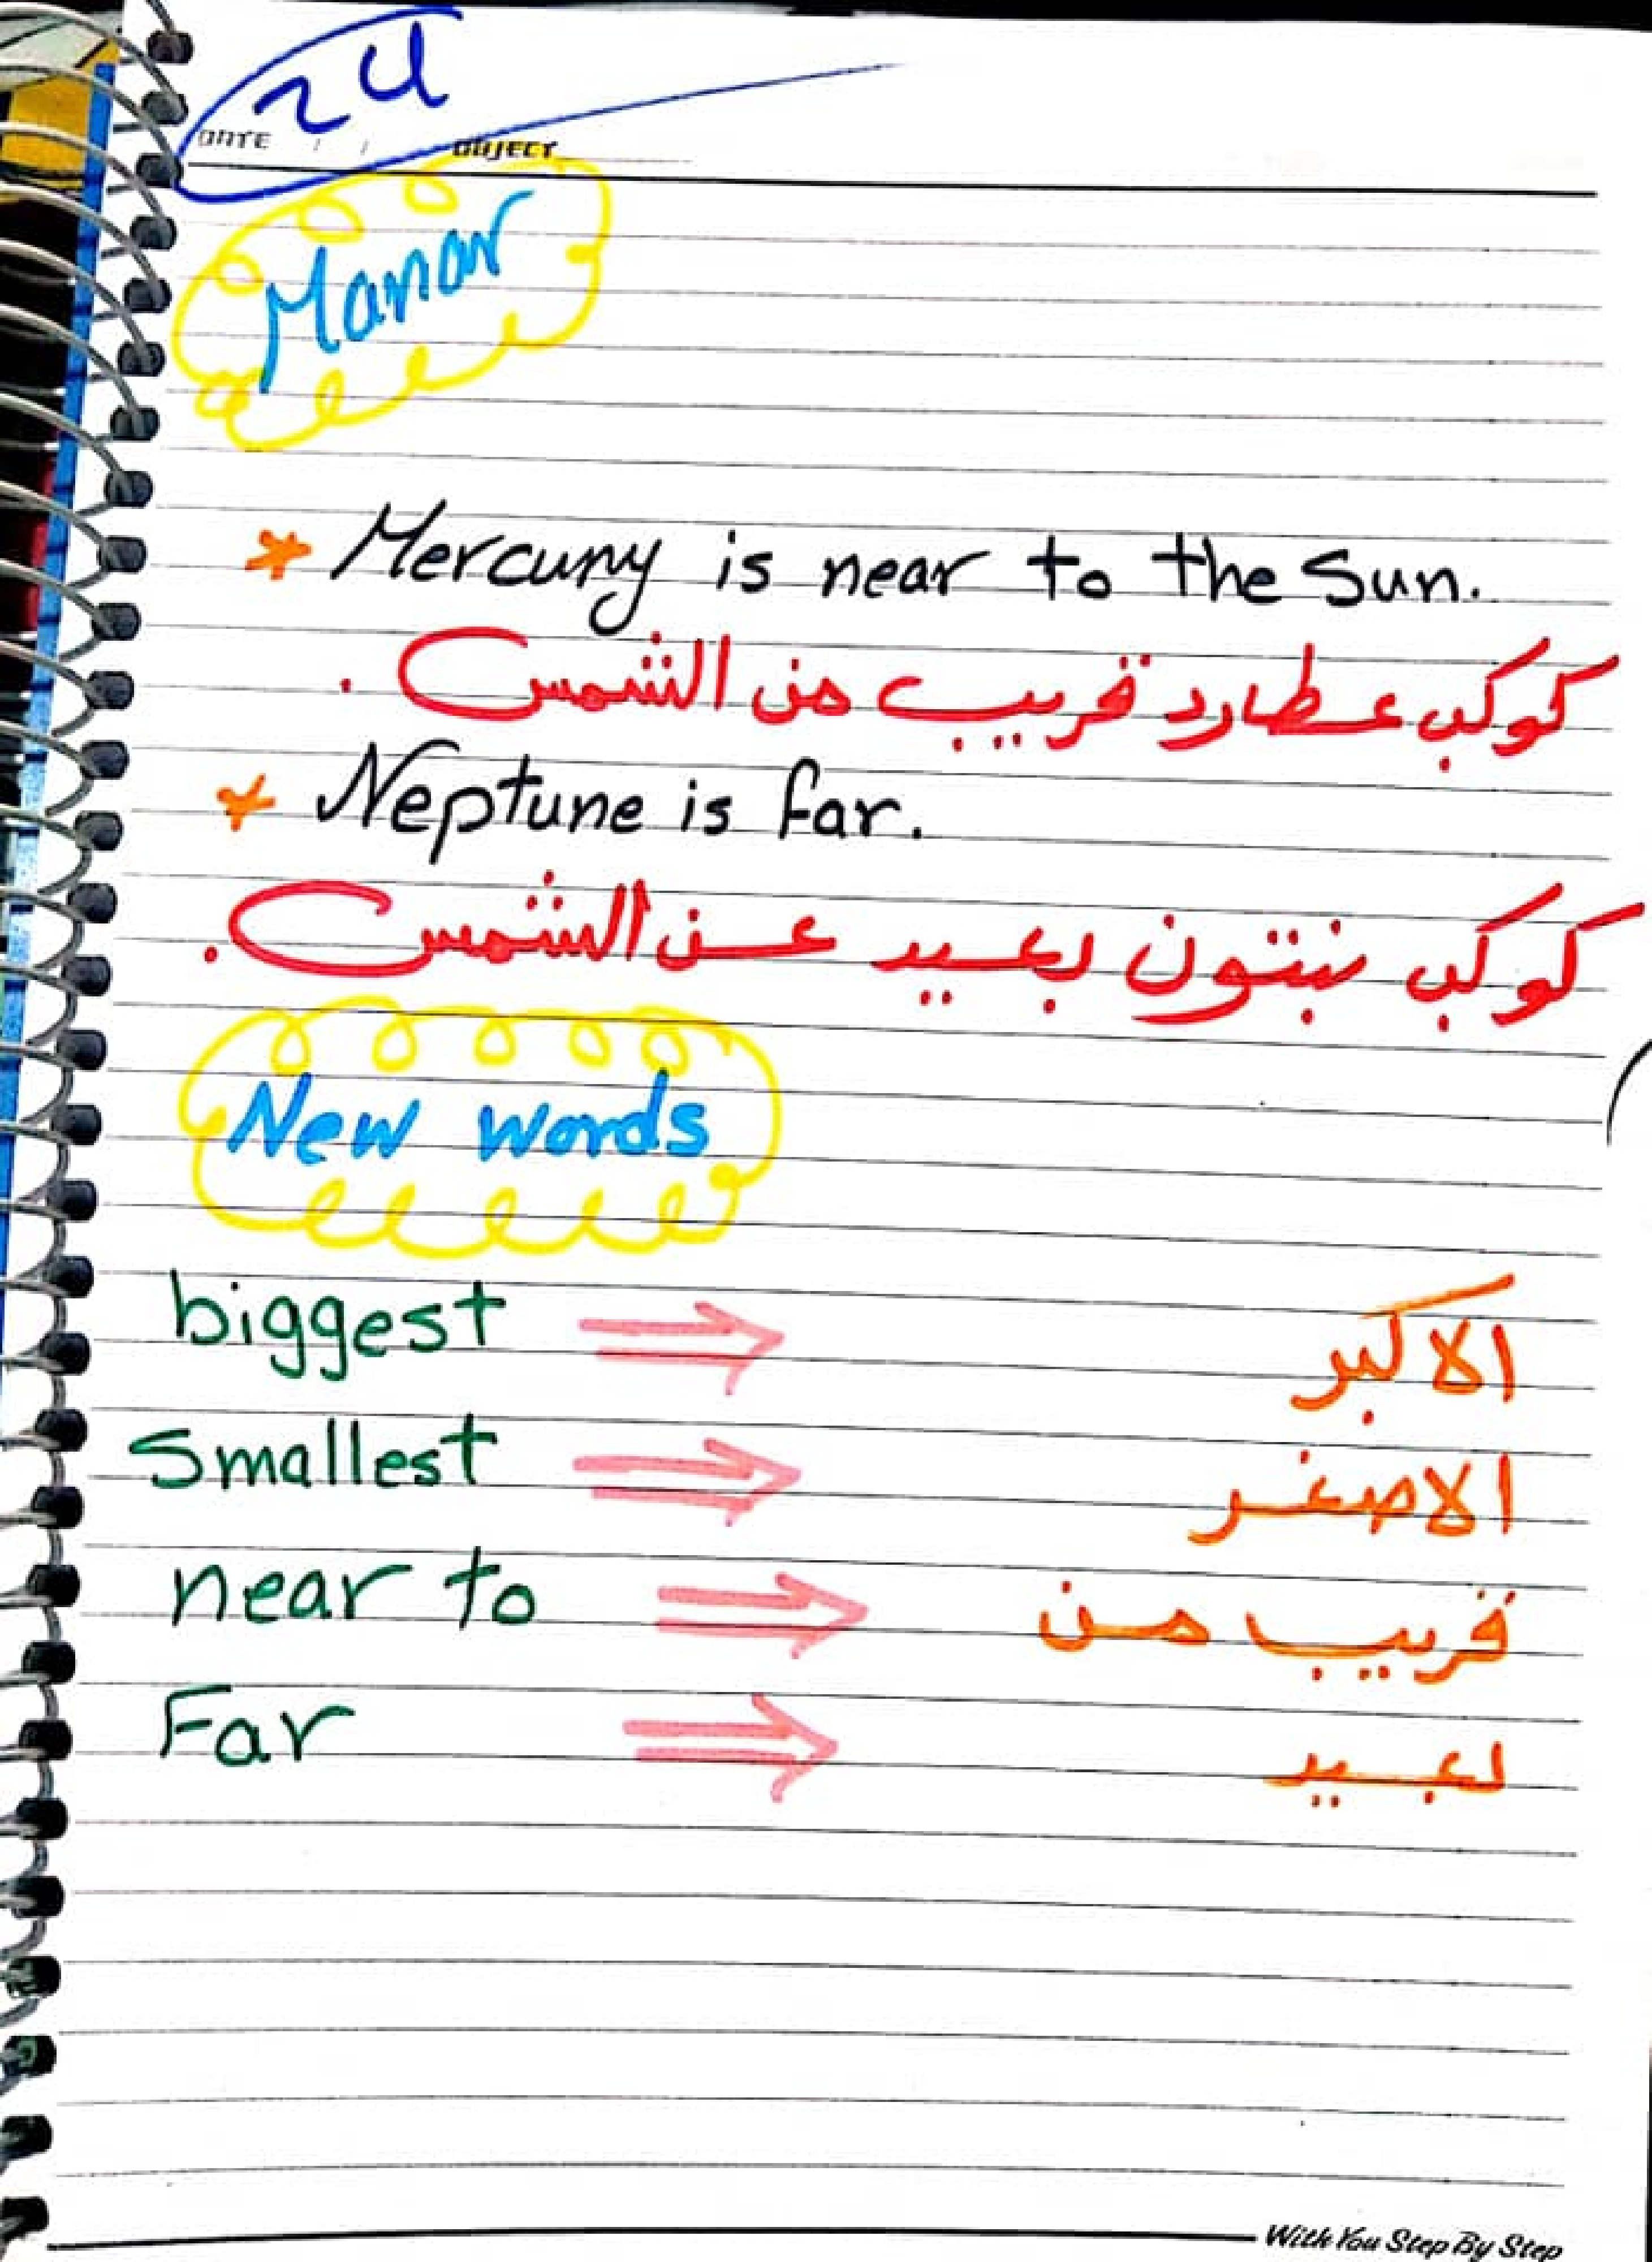 24
DATE / / OBJECT
Manar
* Mercury is near to the Sun.
كوكب عطارد قريب من الشمس .
* Neptune is far.
كوكب نبتون بعيد عن الشمس .
New words
biggest ⇒ الاكبر
Smallest ⇒ الاصغر
near to ⇒ قريب من
Far ⇒ بعيد
With You Step By Step